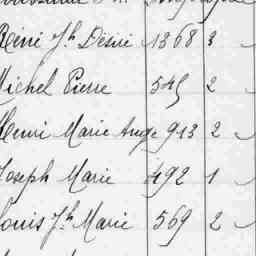 Réné Jh Désiré 1368 3
Michel Pierre 545 2
Henri Marie Ange 913 2
Joseph Marie 492 1
Louis Jh Marie 569 2